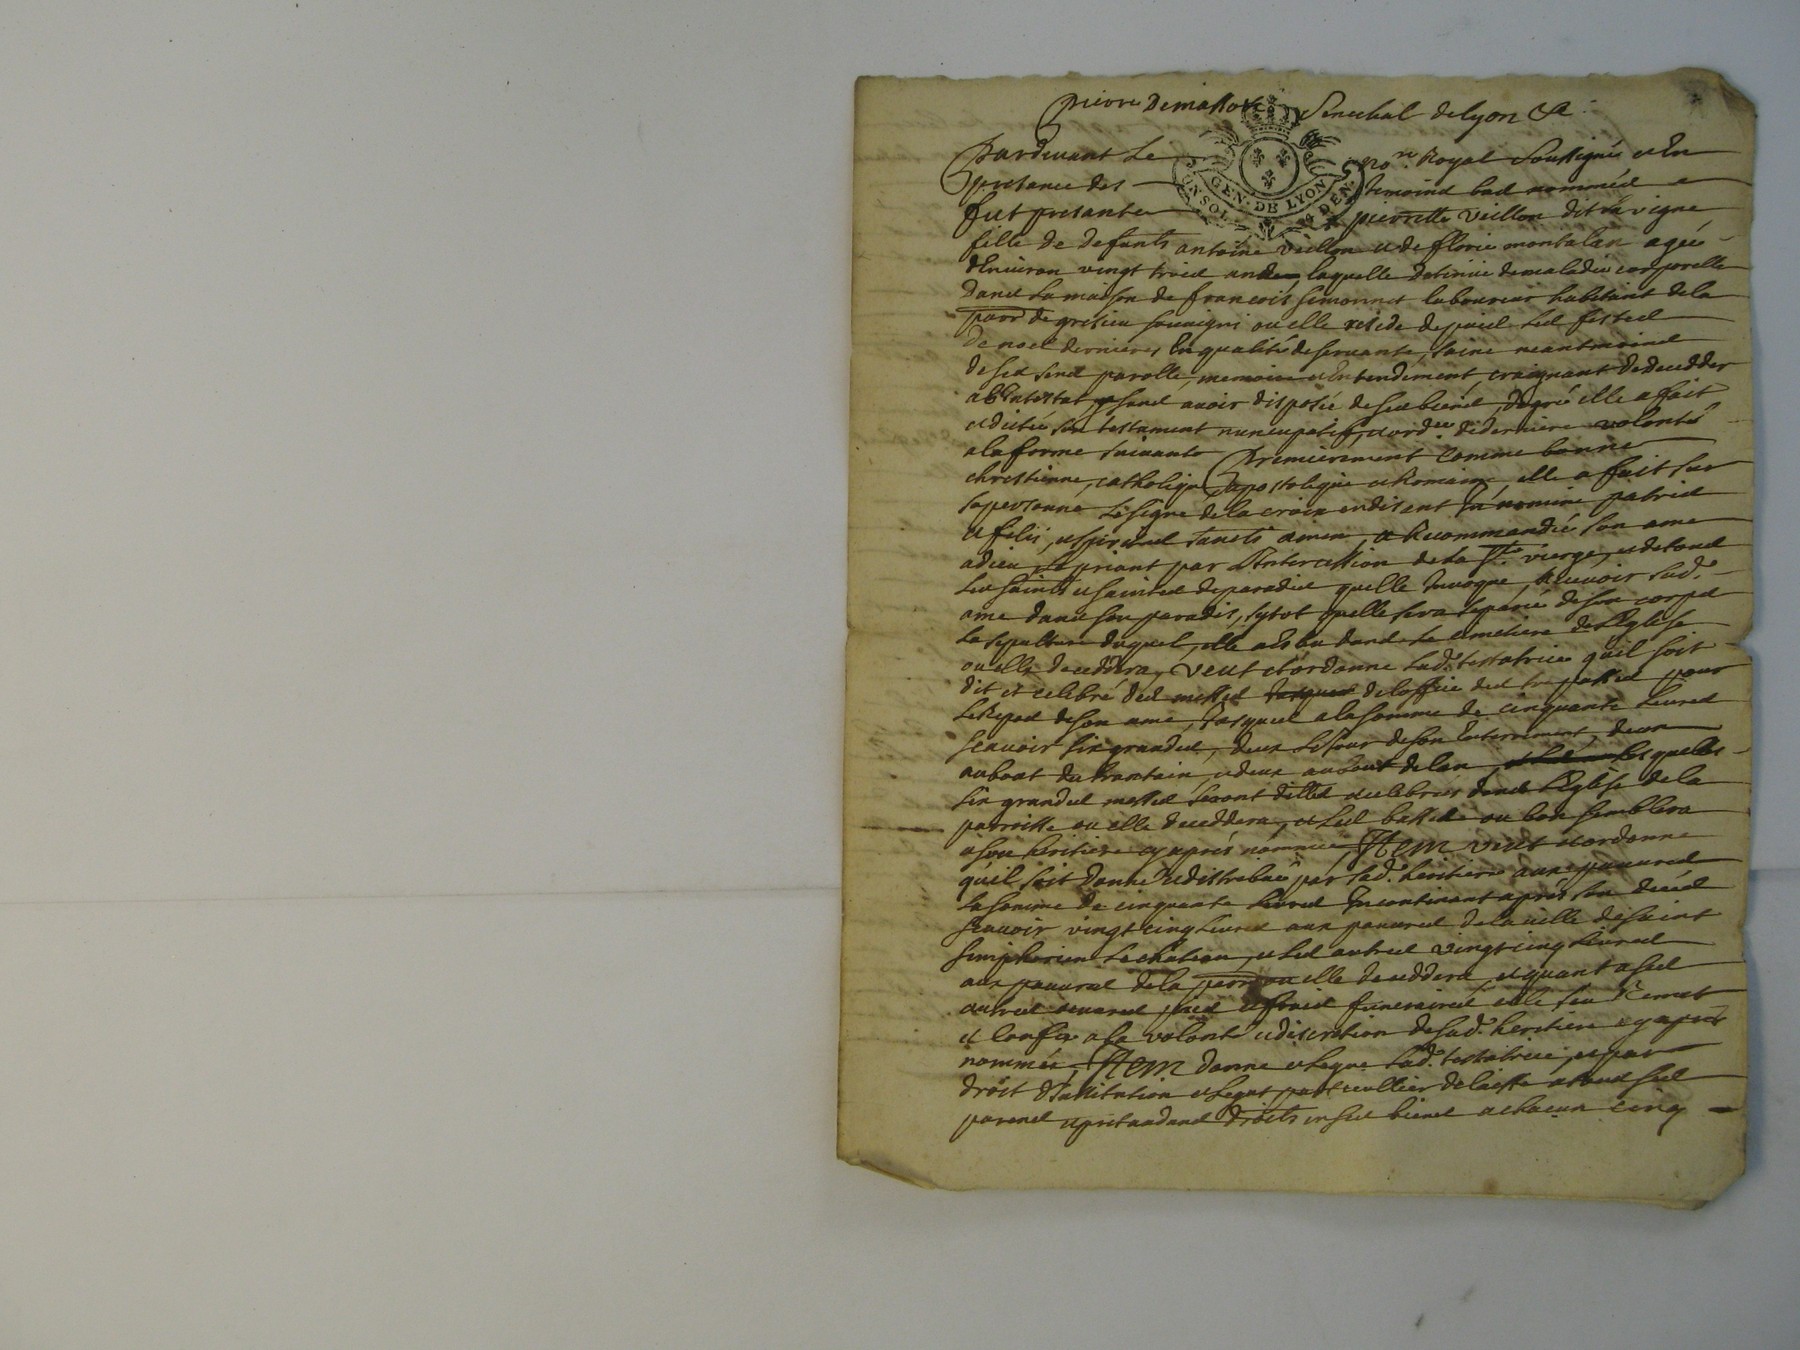 pierre Demassot Senechal de lyon &a :
Pardevant Le no.re Royal soussigné et En
presence des temoins bas nommés
fut presente pierrette veillon dit la vigne
GEN. DE LYON
UN SOL 4 DEN.
fille de defunts antoine veillon et de florie montalan agée
d'Environ vingt trois ans laquelle detenue de maladie corporelle
Dans La maison de francois simonnet laboureur habitant de la
parr de grisieu souvigni ou elle reside depuis les festes
de noel dernieres En qualité de servante, saine neantmoins
de ses sens parolle, memoire et Entendement, craignant de decedder
abIntestat, et sans avoir disposée de ses biens, de gré elle a fait
et dictée son testament nuncupatif, et ord.ce de derniere volonté
a la forme suivante Premierement comme bonne
chrestienne, catholique, apostolique et Romaine, elle a fait sur
sa personne Le signe de la croix en disant In nomine patris
et filii, et spiritus sancti amen, a Recommandée son ame
a dieu, Le priant par L'Intercession de la S.te vierge, et de tous
Les saints et saintes de paradis quelle Invoque, Recevoir sad.e
ame dans son paradis, sytot quelle sera separée de son corps
La sepulture duquel, elle a Esleu dans Le cimetiere de L'Eglise
ou elle decedera, veut et ordonne Lad.e testatrice qu'il soit
dit et celebré des messes de loffice des trepassés pour
Le Repos de son ame, Jusques a la somme de cinquante Livres
scavoir six grandes, deux Le Jour de son Enterrement, deux
au bout du trantain, et deux au bout de lan, Lesquelles
six grandes messes seront dittes et celebrées dans L'Eglise de la
parroisse ou elle deceddera, et Les basses ou bon semblera
a son heritiere cy après nommée, Item veut et ordonne
qu'il soit donné et distribué par sad.e heritiere aux pauvres
La somme de cinquante Livres Incontinant après son decés
scavoir vingt cinq Livres aux pauvres de la ville de saint
simphorien Le chateau, et Les autres vingt cinq Livres
aux pauvres de la parr ou elle deceddera, et quant a ses
autres œuvres pies et frais funeraires elle s'en Remet
et confie a la volonté et discretion de sad.e heritiere cy apres
nommée, Item donne et Legue Lad.e testatrice, et par
droit d'Institution et Legat particullier delaisse a tous ses
parens et pretandans droits en ses biens a chacun cinq